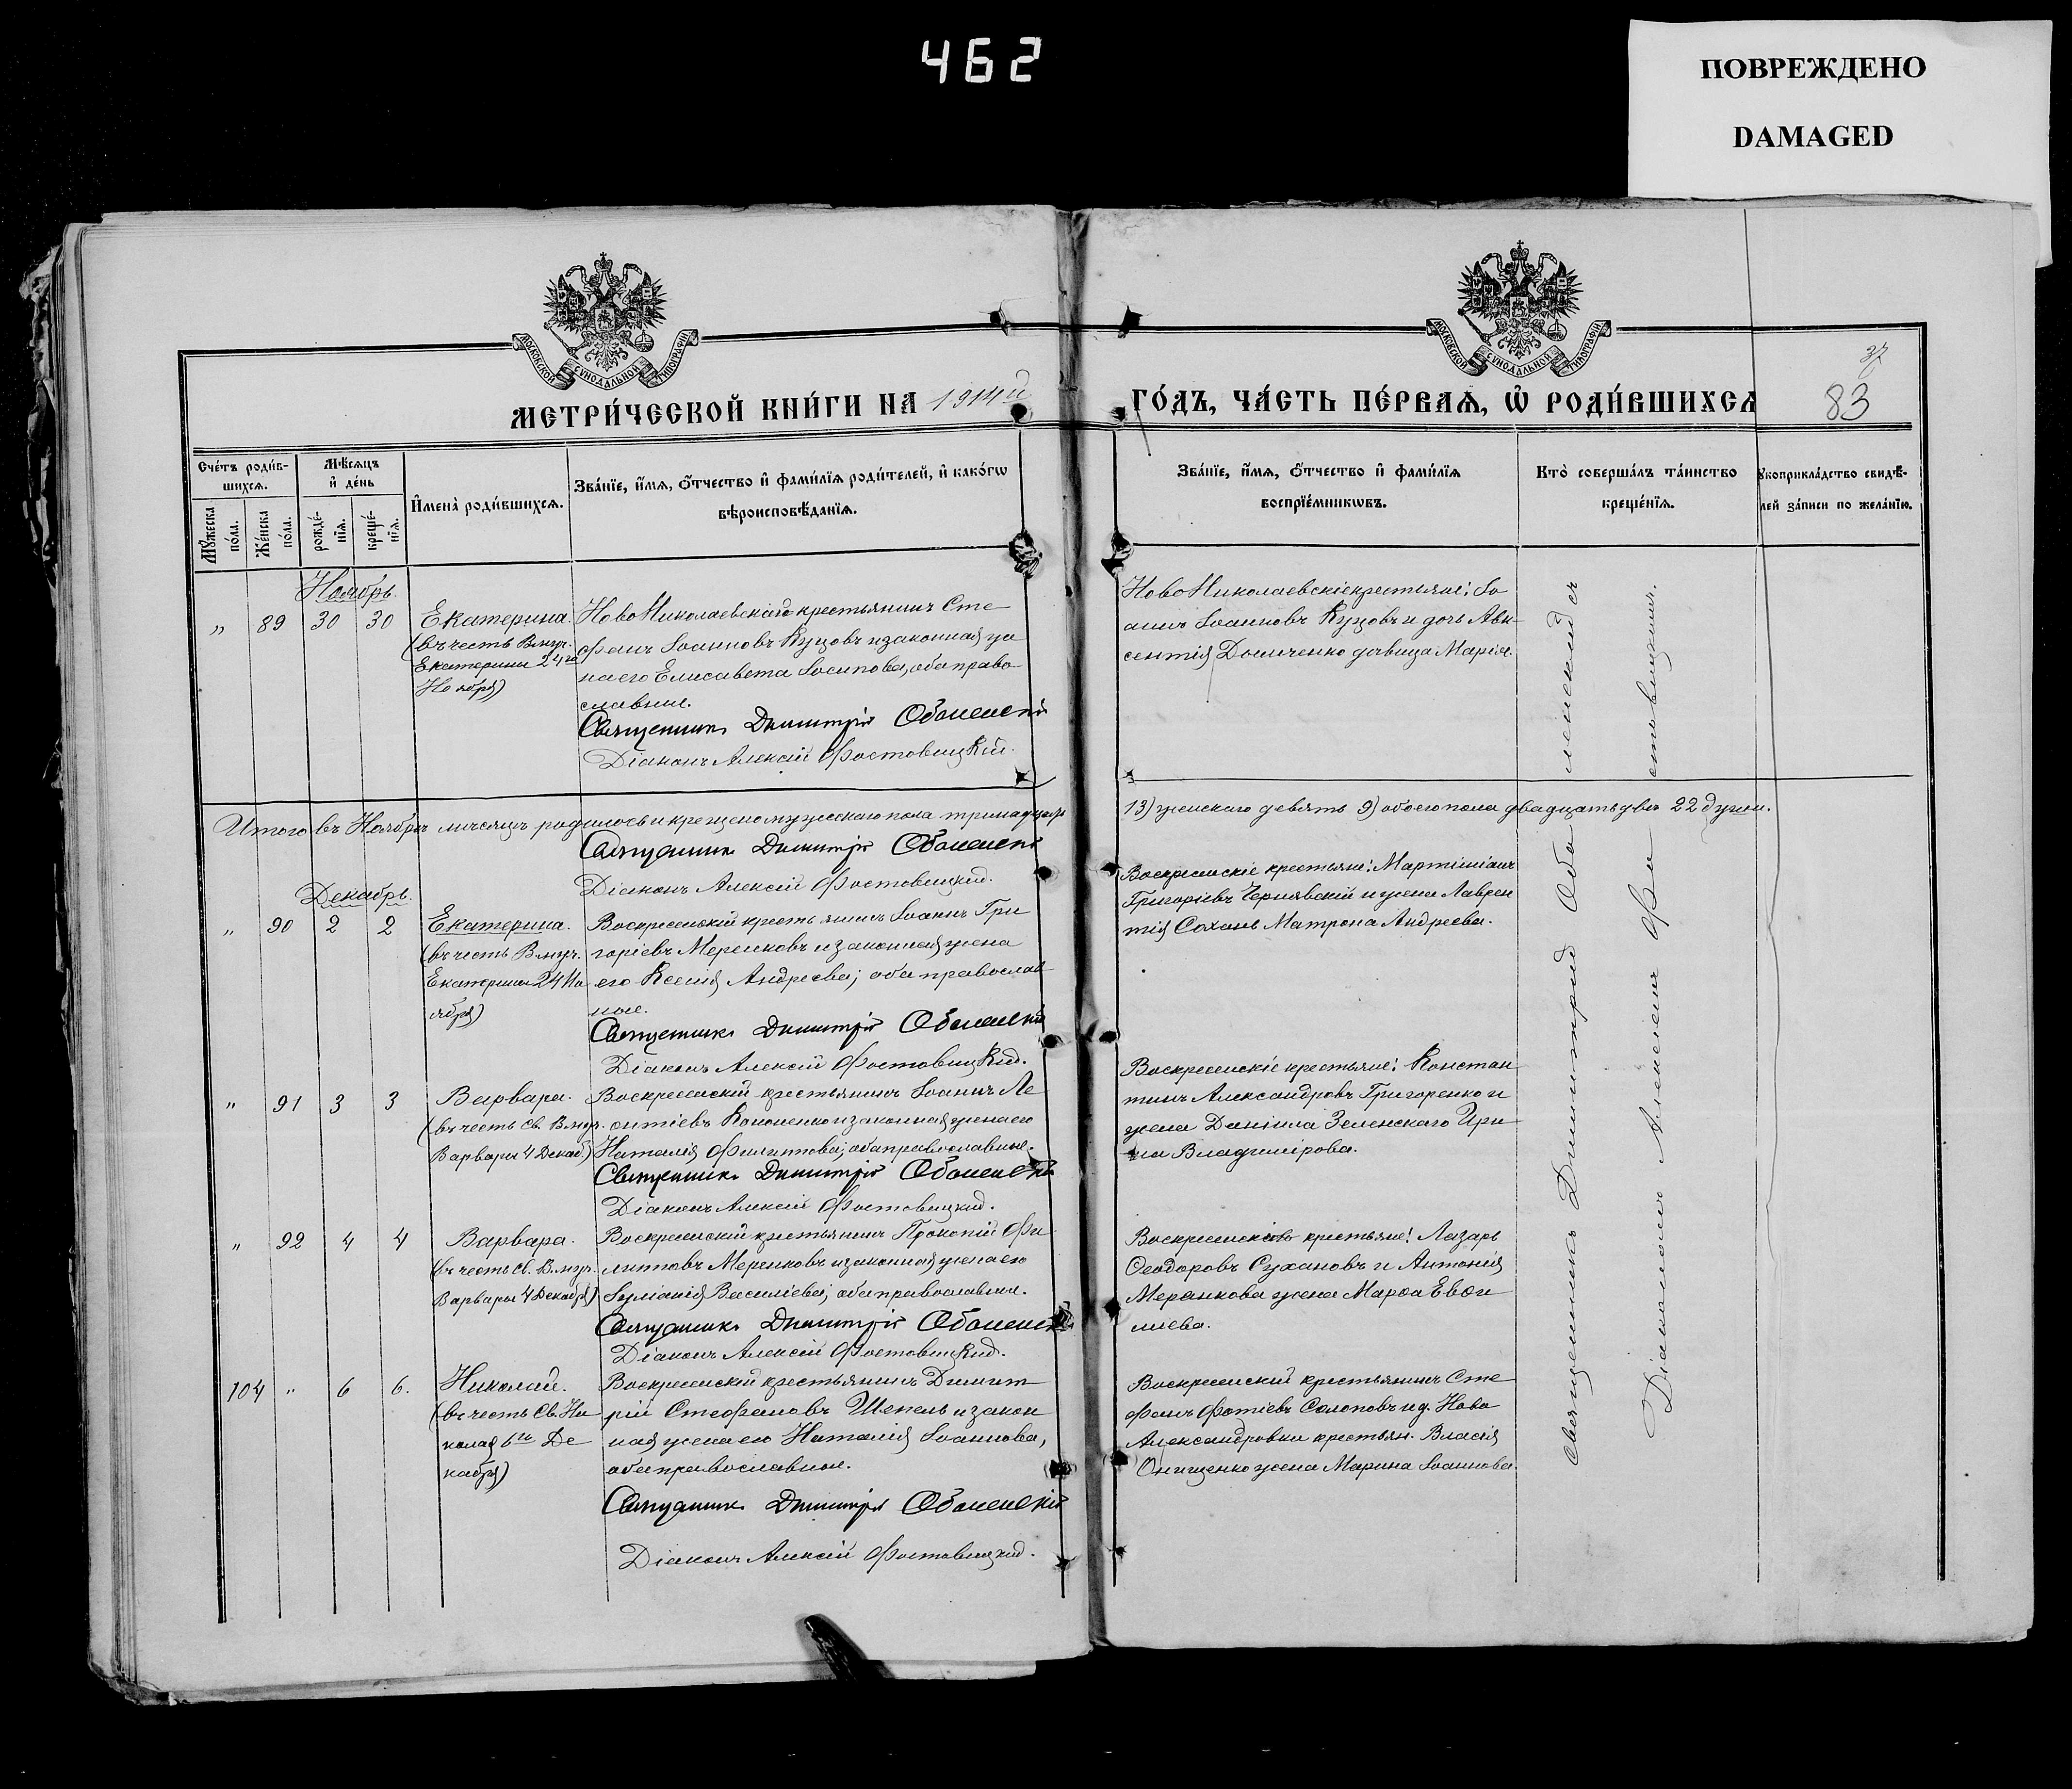 462
ПОВРЕЖДЕНО
DAMAGED
МОСКОВСКОЙ СѴНОДАЛЬНОЙ ТИПОГРАФІИ
МОСКОВСКОЙ СѴНОДАЛЬНОЙ ТИПОГРАФІИ
МЕТРИ́ЧЕСКОЙ КНИ́ГИ НА 1914й
ГО́ДЪ, ЧА́СТЬ ПЕ́РВАѦ, Ѡ РОДИ́ВШИХСѦ
37
83
Сче́тъ роди́в-
шихсѧ.
Мꙋ́жеска
по́ла.
Же́нска
по́ла.
Мѣ́сѧцъ
и де́нь
рожде́-
нїѧ.
креще́-
нїѧ.
Имена̀ роди́вшихсѧ.
Зва́нїе, и́мѧ, ѻ́тчество и фами́лїѧ роди́телей, и како́гѡ
вѣроисповѣ́данїѧ.
Зва́нїе, и́мѧ, ѻ́тчество и фами́лїѧ
воспрїе́мникѡвъ.
Кто̀ соверша́лъ та́инство
креще́нїѧ.
Рꙋкоприкла́дство свидѣ́-
лей за́писи по жела́нїю.
Ноябрь.
„ 89 30 30
Екатерина.
(въ честь Вмуч.
Екатерины 24го
Ноября)
НовоНиколаевскій крестьянинъ Сте
фанъ Іоанновъ Куцовъ и законная же
на его Елисавета Іосипова, оба право
славные.
Священникъ Димитрій Оболенскій
Діаконъ Алексій Фостовицкій.
НовоНиколаевскіе крестьяне: Іо
аннъ Іоанновъ Куцовъ и дочь Авк
сентія Доличенко дѣвица Марія.
Итого въ Ноябрѣ мѣсяцѣ родилось и крещено мужескаго пола тринадцать
13) женскаго девять 9) обоего пола двадцать два 22 души.
Священникъ Димитрій Оболенскій
Діаконъ Алексій Фостовицкій.
Декабрь.
„ 90 2 2
Екатерина.
(въ честь Вмуч.
Екатерины 24 Но
ября)
Воскресенскій крестьянинъ Іоаннъ Гри
горіевъ Меренковъ и законная жена
его Ксенія Андреева; оба православ
ные.
Священникъ Димитрій Оболенскій
Діаконъ Алексій Фостовицкій.
Воскресенскіе крестьяне: Мартиніанъ
Григоріевъ Чернявскій и жена Лаврен
тія Сохань Матрона Андреева.
„ 91 3 3
Варвара.
(въ честь Св. Вмуч.
Варвары 4 Декаб)
Воскресенскій крестьянинъ Іоаннъ Ле
онтіевъ Кононенко и законная жена его
Наталія Филиппова; оба православные.
Священникъ Димитрій Оболенскій
Діаконъ Алексій Фостовицкій.
Воскресенскіе крестьяне: Констан
тинъ Александровъ Григоренко и
жена Даніила Зеленскаго Ири
на Владимірова.
„ 92 4 4
Варвара.
(въ честь Св. Вмуч.
Варвары 4 Декабря)
Воскресенскій крестьянинъ Прокопій Фи
липповъ Меренковъ и законная жена его
Іуліанія Василіева; оба православные.
Священникъ Димитрій Оболенскій
Діаконъ Алексій Фостовицкій.
Воскресенскіе крестьяне: Лазарь
Ѳеодоровъ Сухановъ и Антонія
Меренкова жена Марѳа Евѳи
міева.
104 „ 6 6.
Николай.
(въ честь Св. Ни
колая 6го Де
кабря)
Воскресенскій крестьянинъ Димит
рій Стефановъ Шепель и закон
ная жена его Наталія Іоаннова,
оба православные.
Священникъ Димитрій Оболенскій
Діаконъ Алексій Фостовицкій.
Воскресенскій крестьянинъ Сте
фанъ Фотіевъ Солоповъ и д. Ново
Александровки крестьян. Власія
Онищенко жена Марина Іоаннова.
Священникъ Димитрій Оболенскій съ
Діакономъ Алексіемъ Фостовицкимъ.